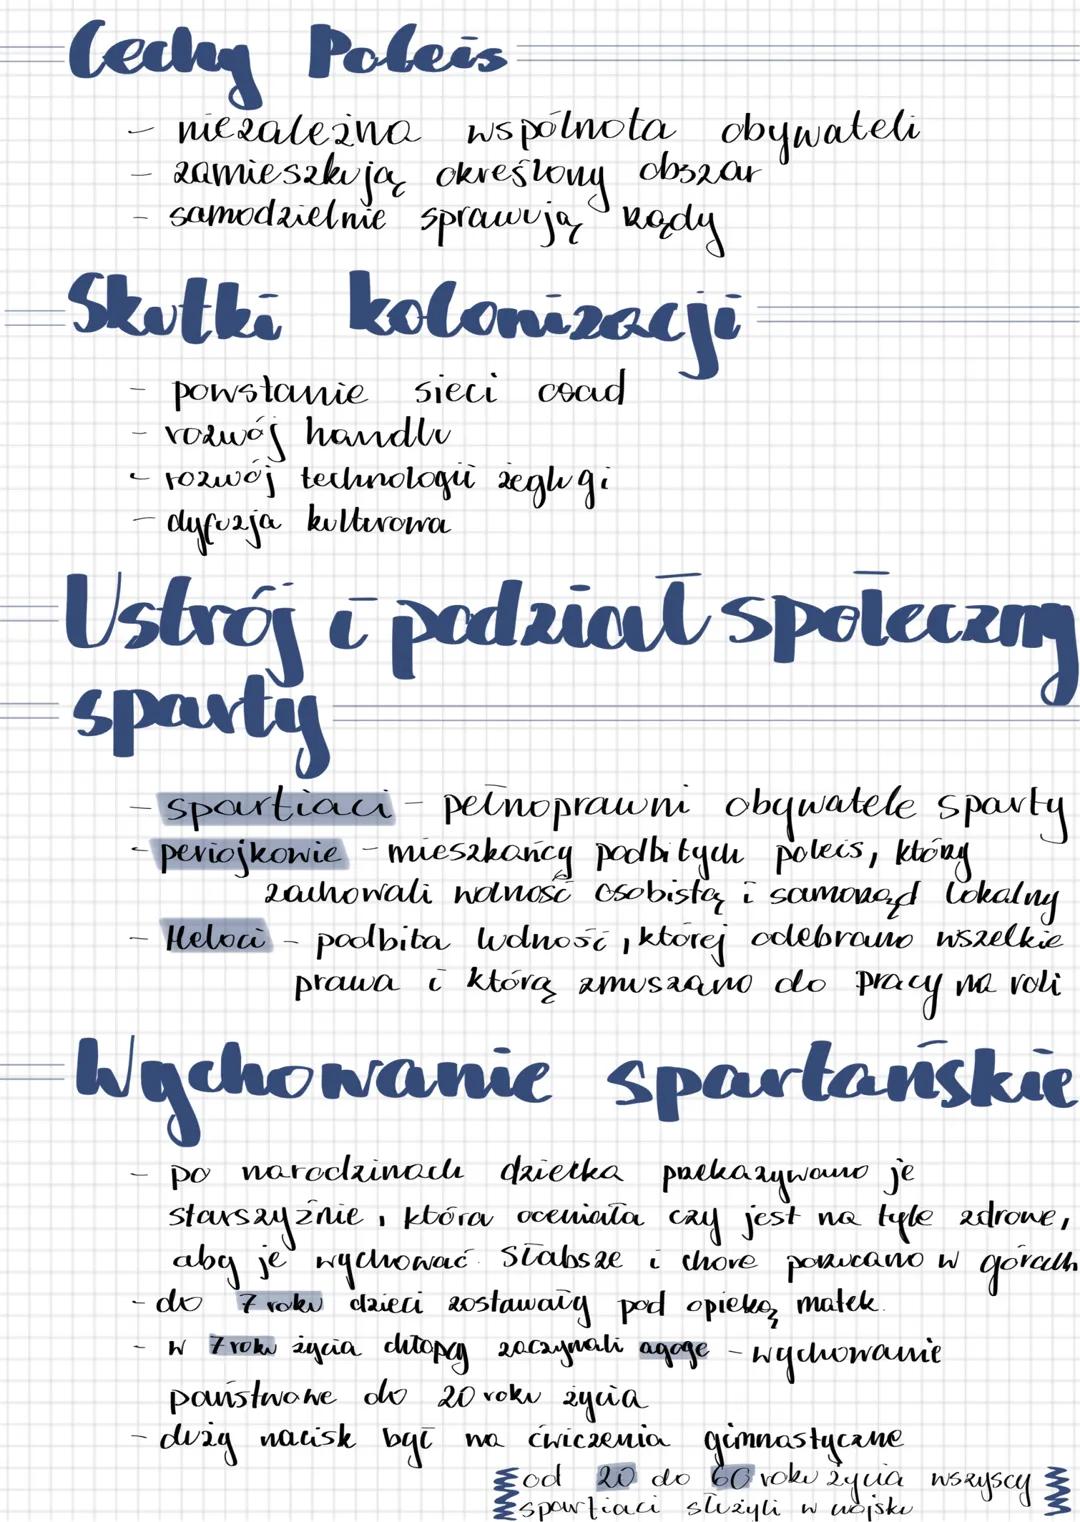 Cechy Poleis
- niezależna wspólnota obywateli
- zamieszkują określony obszar
- samodzielnie sprawują rządy
Skutki kolonizacji
- powstanie sieci osad
- rozwój handlu
- rozwój technologii żeglugi
- dyfuzja kulturowa
Ustrój i podział społeczny
sparty
- spartiaci - pełnoprawni obywatele sparty
- periojkowie - mieszkańcy podbitych poleis, którzy
zachowali wolność osobistą i samorząd lokalny
- Heloci - podbita ludność, której odebrano wszelkie
prawa i którą zmuszano do pracy na roli
Wychowanie spartańskie
- po narodzinach dziecka przekazywano je
starszyźnie, która oceniała czy jest na tyle zdrowe,
aby je wychować. Słabsze i chore porzucano w górach
- do 7 roku dzieci zostawały pod opieką matek.
- w 7 roku życia chłopcy zaczynali agoge - wychowanie
państwowe do 20 roku życia
- duży nacisk był na ćwiczenia gimnastyczne
od 20 do 60 roku życia wszyscy
spartiaci służyli w wojsku